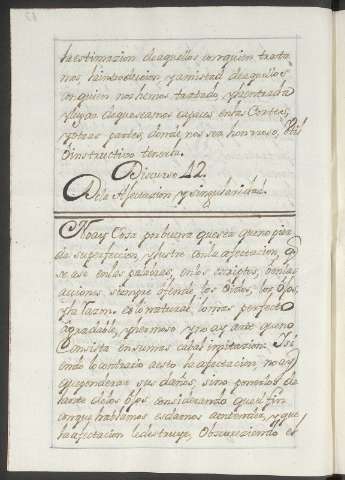 la estimazion de aquellos con quien trata
mos, la introduccion, y amistad de aquellos
con quien nos hemos tratado, y la entrada
y lugar de que seamos capaces en las Cortes,
y otras partes, donde nos sea honroso, util
o instructivo tenerla.
Discurso 12.
De la Afectacion y singularidad.
No ay Cosa por buena que sea que no pier
da su perfeccion, y lustre con la afectacion, q
se ase en las palabras, en los escriptos, o en las
acciones, siempre ofende los oidos, los ojos,
y la razon. Lo natural, lo mas perfecto
agradable, y hermoso y no ay arte que no
Consista en su mas cabal imitazion. Si
endo lo contrario a esto la afectacion, no ay
que ponderar sus daños, sino ponerlos de
lante de los ojos, considerando que el fin
con que hablamos es darnos a entender, y que
la afectacion le destruye, obscureziendo el